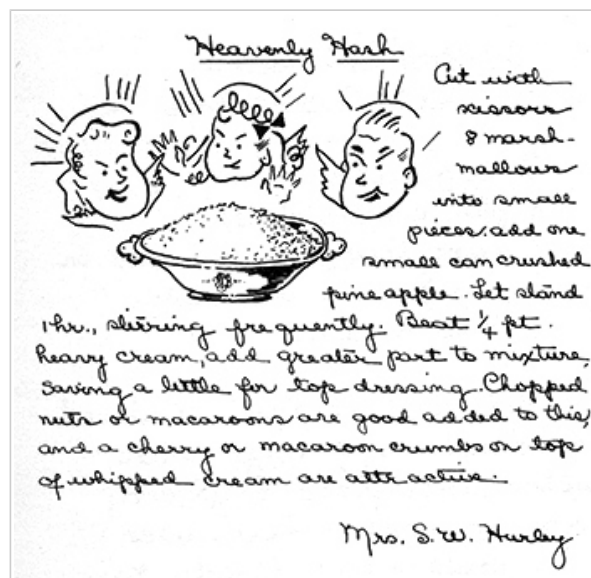 Heavenly Hash
Cut with
scissors
8 marsh-
mallows
into small
pieces. add one
small can crushed
pineapple. Let stand
1 hr., stirring frequently. Beat 1/4 pt.
heavy cream, add greater part to mixture,
saving a little for top dressing. Chopped
nuts or macaroons are good added to this,
and a cherry or macaroon crumbs on top
of whipped cream are attractive.
Mrs. S. W. Hurley